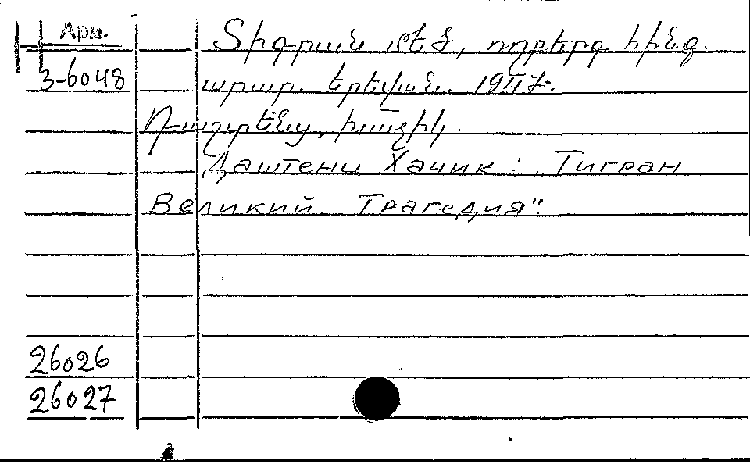 Арм.
Տիգրան Մեծ, ողբերգ. հինգ
3-6048
արար. Երևան. 19
Դաշտենց, Խաչիկ.
Даштенц Хачик: Тигран
Великий. Трагедия".
26026
26027